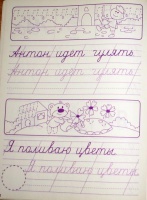 Антон идет гулять
Антон идет гулять
Я поливаю цветы
Я поливаю цветы